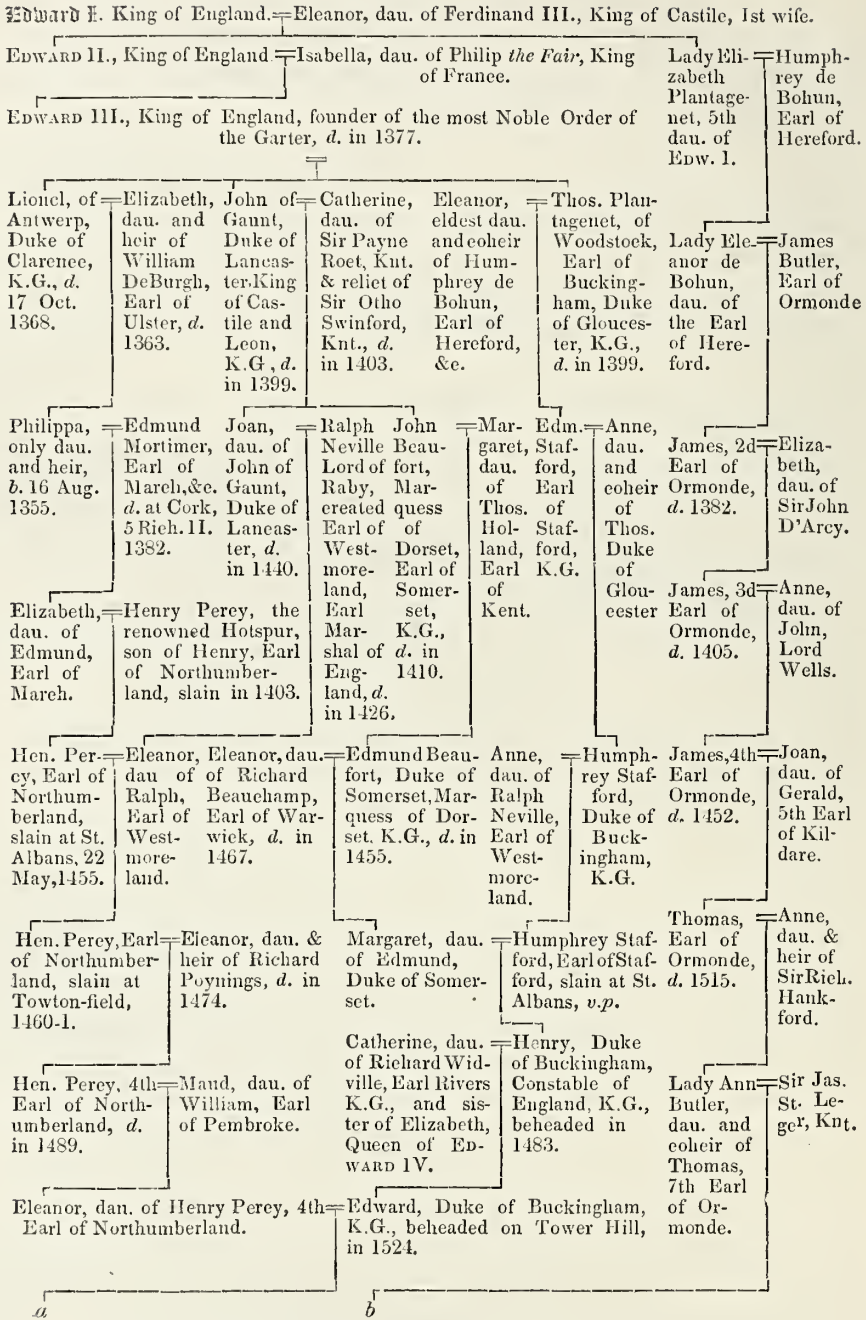 Edward I. King of England.=Eleanor, dau. of Ferdinand III., King of Castile, 1st wife.
EDWARD II., King of England=Isabella, dau. of Philip the Fair, King
of France.
Lady Eli-
zabeth
Plantage-
net, 5th
dau. of
EDW. I.
=Humph-
rey de
Bohun,
Earl of
Hereford.
EDWARD III., King of England, founder of the most Noble Order of
the Garter, d. in 1377.
Lionel, of
Antwerp,
Duke of
Clarence,
K.G., d.
17 Oct.
1368.
=Elizabeth,
dau. and
heir of
William
DeBurgh,
Earl of
Ulster, d.
1363.
John of
Gaunt,
Duke of
Lancas-
ter, King
of Cas-
tile and
Leon,
K.G., d.
in 1399.
=Catherine,
dau. of
Sir Payne
Roet, Knt.
& relict of
Sir Otho
Swinford,
Knt., d.
in 1403.
Eleanor,
eldest dau.
and coheir
of Hum-
phrey de
Bohun,
Earl of
Hereford,
&c.
=Thos. Plan-
tagenet, of
Woodstock,
Earl of
Bucking-
ham, Duke
of Glouces-
ter, K.G.,
d. in 1399.
Lady Ele-
anor de
Bohun,
dau. of
the Earl
of Here-
ford.
=James
Butler,
Earl of
Ormonde
Philippa,
only dau.
and heir,
b. 16 Aug.
1355.
=Edmund
Mortimer,
Earl of
March, &c.
d. at Cork,
5 Rich. II.
1382.
Joan,
dau. of
John of
Gaunt,
Duke of
Lancas-
ter, d.
in 1440.
=Ralph
Neville
Lord of
Raby,
created
Earl of
West-
more-
land,
Earl
Mar-
shal of
Eng-
land, d.
in 1426.
John
Beau-
fort,
Mar-
quess
of
Dorset,
Earl of
Somer-
set,
K.G.,
d. in
1410.
=Mar-
garet,
dau.
of
Thos.
Hol-
land,
Earl
of
Kent.
Edm.
Staf-
ford,
Earl
of
Staf-
ford,
K.G.
=Anne,
dau.
and
coheir
of
Thos.
Duke
of
Glou-
cester
James, 2d
Earl of
Ormonde,
d. 1382.
=Eliza-
beth,
dau. of
Sir John
D'Arcy.
Elizabeth,
dau. of
Edmund,
Earl of
March.
=Henry Percy, the
renowned Hotspur,
son of Henry, Earl
of Northumber-
land, slain in 1403.
James, 3d
Earl of
Ormonde,
d. 1405.
=Anne,
dau. of
John,
Lord
Wells.
Hen. Per-
cy, Earl of
Northum-
berland,
slain at St.
Albans, 22
May, 1455.
=Eleanor,
dau of
Ralph,
Earl of
West-
more-
land.
Eleanor, dau.
of Richard
Beauchamp,
Earl of War-
wick, d. in
1467.
=Edmund Beau-
fort, Duke of
Somerset, Mar-
quess of Dor-
set, K.G., d. in
1455.
Anne,
dau. of
Ralph
Neville,
Earl of
West-
more-
land.
=Humph-
rey Staf-
ford,
Duke of
Buck-
ingham,
K.G.
James, 4th
Earl of
Ormonde,
d. 1452.
=Joan,
dau. of
Gerald,
5th Earl
of Kil-
dare.
Hen. Percy, Earl
of Northumber-
land, slain at
Towton-field,
1460-1.
=Eleanor, dau. &
heir of Richard
Poynings, d. in
1474.
Margaret, dau.
of Edmund,
Duke of Somer-
set.
=Humphrey Staf-
ford, Earl of Staf-
ford, slain at St.
Albans, v.p.
Thomas,
Earl of
Ormonde,
d. 1515.
=Anne,
dau. &
heir of
Sir Rich.
Hank-
ford.
Hen. Percy, 4th
Earl of North-
umberland, d.
in 1489.
=Maud, dau. of
William, Earl
of Pembroke.
Catherine, dau.
of Richard Wid-
ville, Earl Rivers
K.G., and sis-
ter of Elizabeth,
Queen of ED-
WARD IV.
=Henry, Duke
of Buckingham,
Constable of
England, K.G.,
beheaded in
1483.
Lady Ann
Butler,
dau. and
coheir of
Thomas,
7th Earl
of Or-
monde.
=Sir Jas.
St. Le-
ger, Knt.
Eleanor, dau. of Henry Percy, 4th
Earl of Northumberland.
=Edward, Duke of Buckingham,
K.G., beheaded on Tower Hill,
in 1524.
a
b